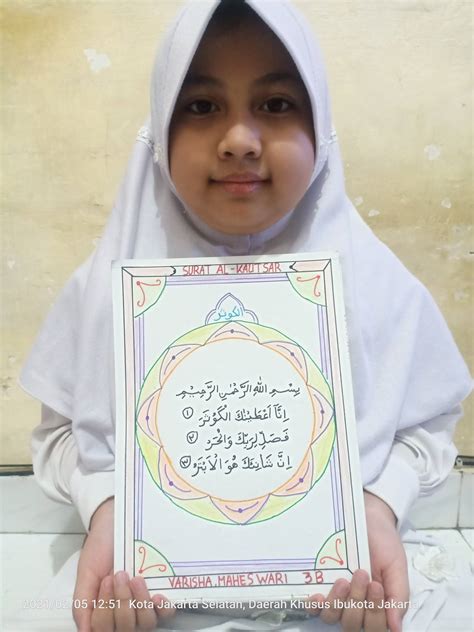 SURAT AL-KAUTSAR
الكوثر
بِسْمِ اللهِ الرَّحْمٰنِ الرَّحِيْمِ
اِنَّآ اَعْطَيْنٰكَ الْكَوْثَرَ ١
فَصَلِّ لِرَبِّكَ وَانْحَرْ ٢
اِنَّ شَانِئَكَ هُوَ الْاَبْتَرُ ٣
VARISHA.MAHESWARI 3B
2021/02/05 12:51 Kota Jakarta Selatan, Daerah Khusus Ibukota Jakarta